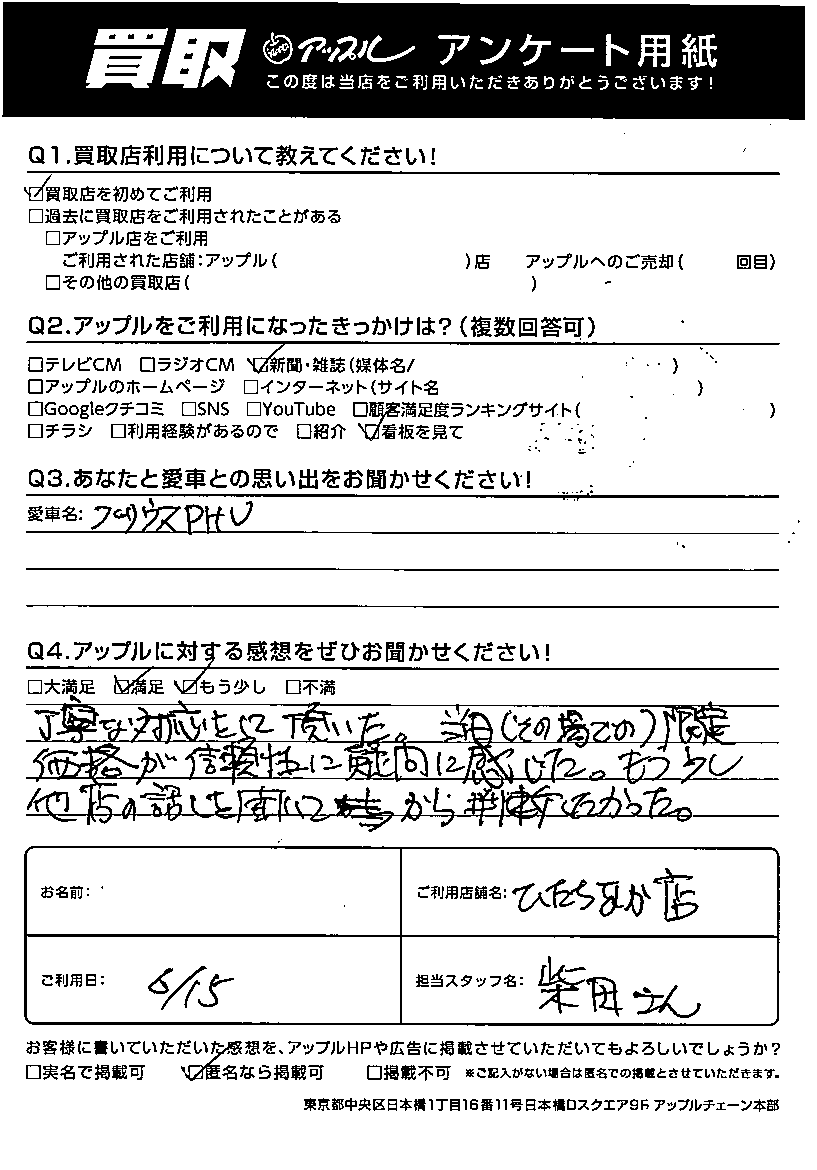 買取 アップル アンケート用紙
この度は当店をご利用いただきありがとうございます!
Q1.買取店利用について教えてください!
☑買取店を初めてご利用
□過去に買取店をご利用されたことがある
□アップル店をご利用
ご利用された店舗:アップル( )店 アップルへのご売却( 回目)
□その他の買取店( )
Q2.アップルをご利用になったきっかけは?(複数回答可)
□テレビCM □ラジオCM ☑新聞・雑誌(媒体名/ )
□アップルのホームページ □インターネット(サイト名 )
□Googleクチコミ □SNS □YouTube □顧客満足度ランキングサイト( )
□チラシ □利用経験があるので □紹介 ☑看板を見て
Q3.あなたと愛車との思い出をお聞かせください!
愛車名: プリウスPHV
Q4.アップルに対する感想をぜひお聞かせください!
□大満足 ☑満足 ☑もう少し □不満
丁寧な対応をして頂いた。当日(その場での)限定
価格が信頼性に疑問に感じた。もう少し
他店の話しを聞いてから判断したかった。
お名前:
ご利用店舗名: ひたちなか店
ご利用日: 6/15
担当スタッフ名: 柴田さん
お客様に書いていただいた感想を、アップルHPや広告に掲載させていただいてもよろしいでしょうか?
□実名で掲載可 ☑匿名なら掲載可 □掲載不可 ※ご記入がない場合は匿名での掲載とさせていただきます。
東京都中央区日本橋1丁目16番11号日本橋Dスクエア9F アップルチェーン本部